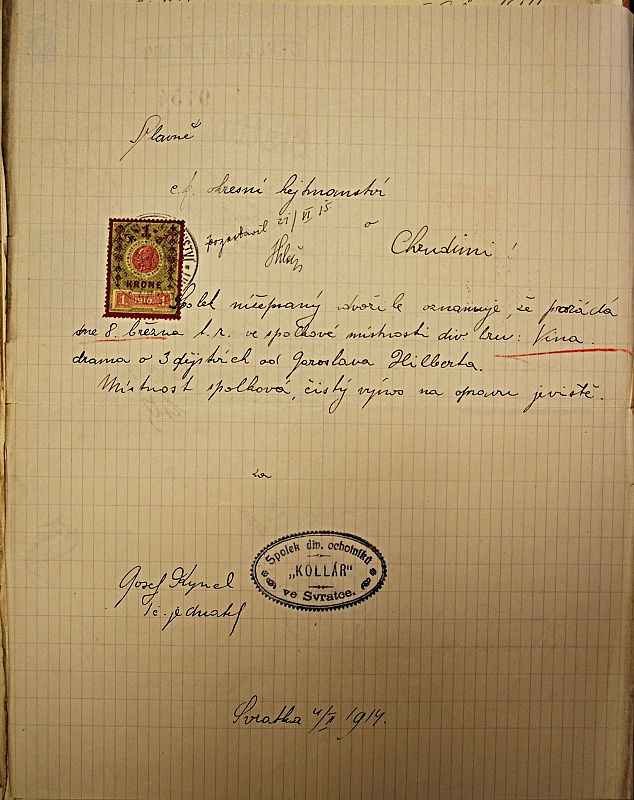 Slavné
c.k. okresní hejtmanství
21/VI 15.
v
Chrudimi!
1
KRONE
1 1910 1
Spolek nížepsaný dvoř. le oznamuje, že pořádá
dne 8. března t.r. ve spolkové místnosti div. hru: Vina.
drama o 3 dějstvích od Jaroslava Hilberta.
Místnost spolková, čistý výnos na opravu jeviště.
za
Spolek div. ochotníků
„KOLLÁR"
ve Svratce.
Josef Kyncl
t.č. jednatel
Svratka 4/II 1914.